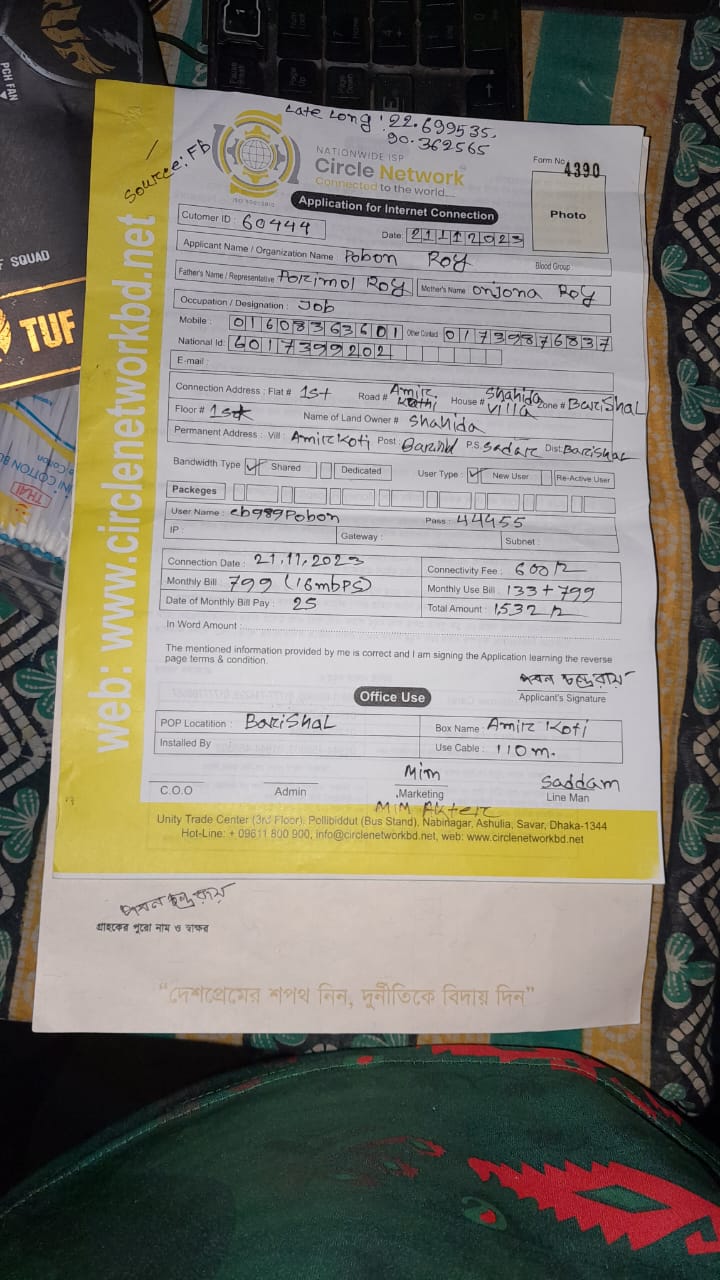 Late Long : 22.699535.
90.362565
Source: Fb
NATIONWIDE ISP
Circle Network
Connected to the world....
ISO 9001:2015
Form No 4390
Photo
Application for Internet Connection
Cutomer ID : 60444
Date: 21 11 2023
Applicant Name / Organization Name Pobon Roy
Blood Group :
Father's Name / Representative Porimol Roy Mother's Name onjona Roy
Occupation / Designation : Job
Mobile : 01608363601 Other Contact 01739876837
National Id: 6017399202
E-mail :
Connection Address : Flat # 1st Road # Amir Kothi House # Shahida Villa Zone # BariShaL
Floor # 1st Name of Land Owner # Shahida
Permanent Address : Vill : AmirKoti Post : P.S. Sadar Dist BariShaL
Bandwidth Type Shared Dedicated User Type : New User Re-Active User
Packeges
User Name : cb989Pobon Pass : 44455
IP : Gateway : Subnet :
Connection Date : 21.11.2023 Connectivity Fee : 600
Monthly Bill : 799 (16mbPS) Monthly Use Bill : 133 + 799
Date of Monthly Bill Pay : 25 Total Amount : 1532
In Word Amount :
The mentioned information provided by me is correct and I am signing the Application learning the reverse
page terms & condition.
পবন চন্দ্র রায়
Applicant's Signature
Office Use
POP Locatition : BariShaL Box Name : Amir Koti
Installed By Use Cable : 110 m.
Mim Saddam
C.O.O Admin Marketing Line Man
Mim Akter
Unity Trade Center (3rd Floor), Pollibiddut (Bus Stand), Nabinagar, Ashulia, Savar, Dhaka-1344
Hot-Line: + 09611 800 900, info@circlenetworkbd.net, web: www.circlenetworkbd.net
web: www.circlenetworkbd.net
পবন চন্দ্র রায়
গ্রাহকের পুরো নাম ও স্বাক্ষর
“দেশপ্রেমের শপথ নিন, দুর্নীতিকে বিদায় দিন”
PCH FAN
SQUAD
TUF